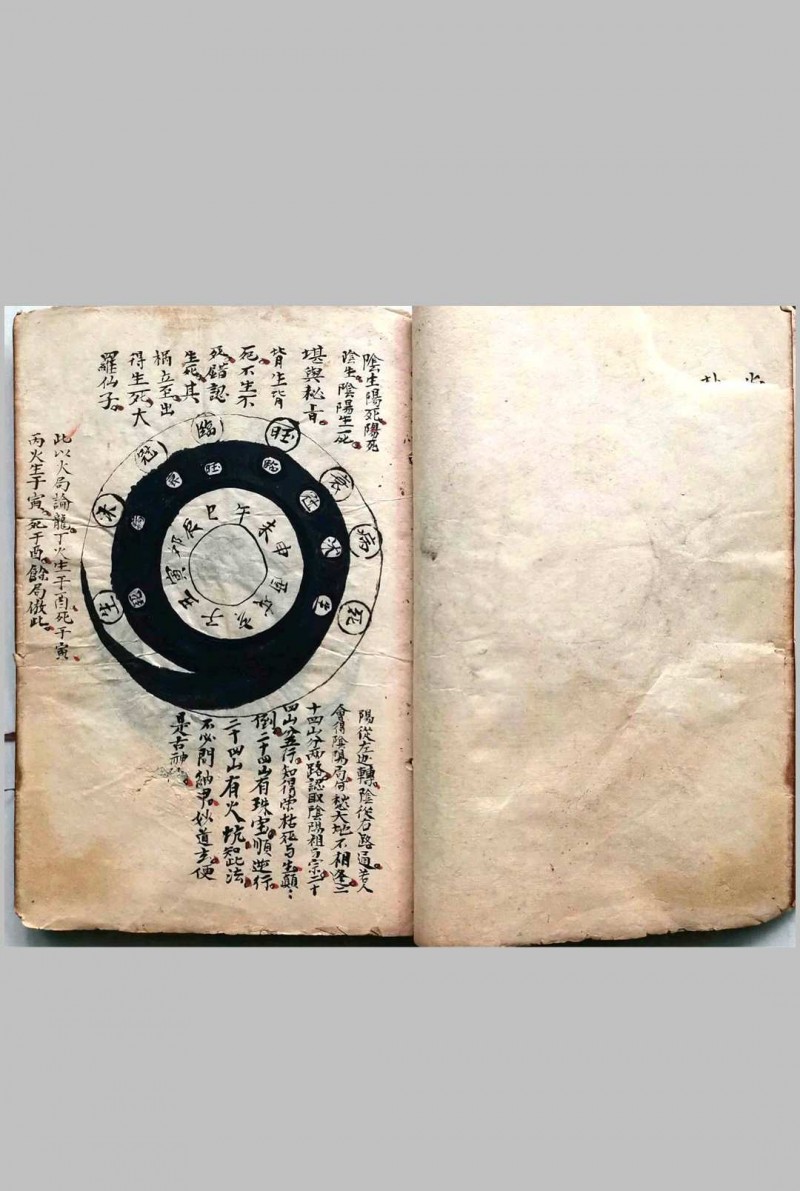 陰生陽死陽死
陰生陰陽生一死
堪輿秘旨
皆生皆
死不生不
死錯認
生死其
禍立至出
得生死大
羅仙子
旺
臨
冠
衰
病
死
生
旺
臨
衰
午
未
申
酉
亥
子
丑
寅
卯
辰
巳
此以火局論龍丁火生于酉死于寅
丙火生于寅死于酉餘局倣此
陽從左邊轉陰從右路通若人
會得陰陽局何愁天地不相逢二
十四山分兩路認取陰陽祖与宗二十
四山分五行知得荣枯死与生顛々
倒二十四山有珠宝順逆行
二十四山有火坑知此法
不必問納甲妙道玄便
是古神